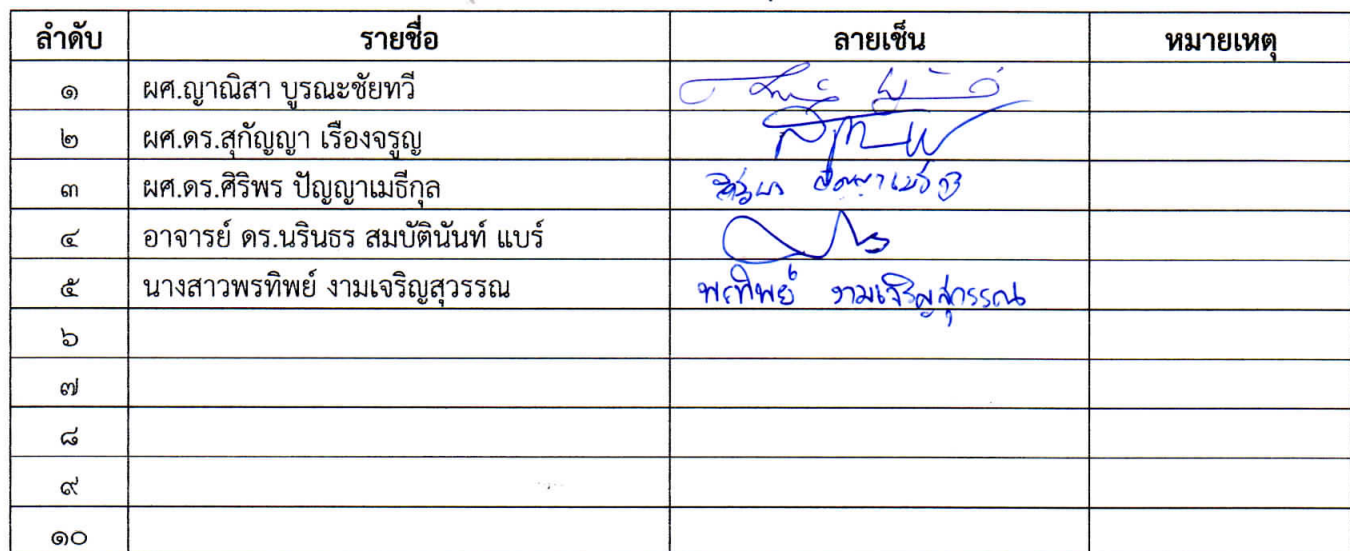 ลำดับ รายชื่อ ลายเซ็น หมายเหตุ
๑ ผศ.ญาณิสา บูรณะชัยทวี
๒ ผศ.ดร.สุกัญญา เรืองจรูญ
๓ ผศ.ดร.ศิริพร ปัญญาเมธีกุล
๔ อาจารย์ ดร.นรินธร สมบัตินันท์ แบร์
๕ นางสาวพรทิพย์ งามเจริญสุวรรณ พรทิพย์ งามเจริญสุวรรณ
๖
๗
๘
๙
๑๐